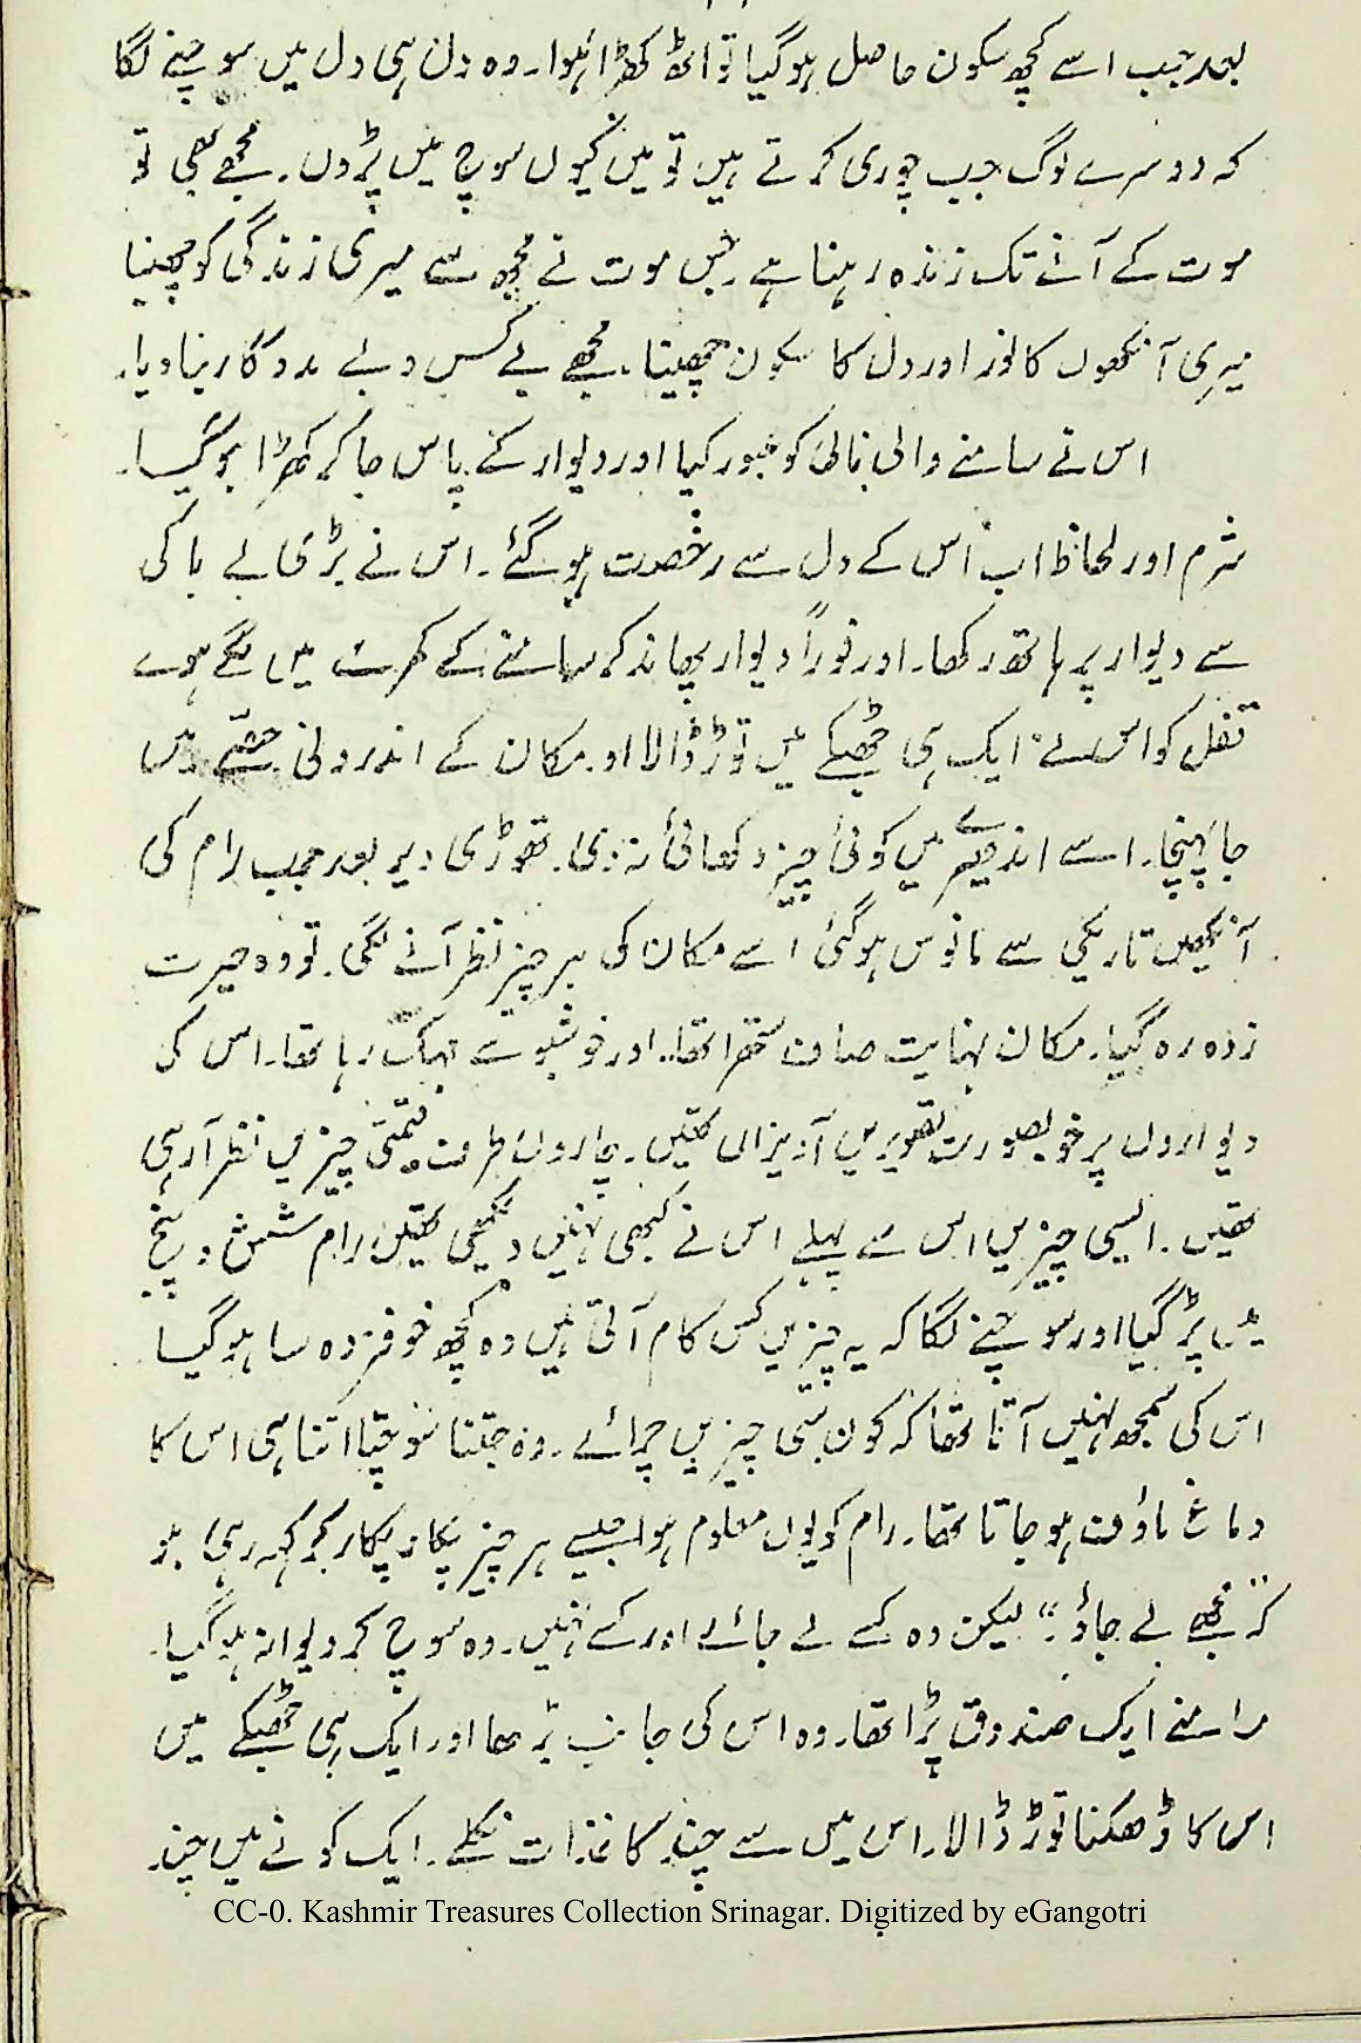 بعد جب اسے کچھ سکون حاصل ہوگیا تو اٹھ کھڑا ہُوا۔ وہ دل ہی دل میں سوچنے لگا
کہ دوسرے لوگ جب چوری کرتے ہیں تو میں کیوں سوچ میں پڑوں۔ مجھے بھی تو
موت کے آنے تک زندہ رہنا ہے جس موت نے مجھ سے میری زندگی کو چھینا
میری آنکھوں کا نور اور دل کا سکون چھینا۔ مجھے بے کس و بے مددگار بنا دیا۔
اس نے سامنے والی نالی کو عبور کیا اور دیوار کے پاس جا کر کھڑا ہوگیا۔
شرم اور لحاظ اب اُس کے دل سے رخصت ہوگئے۔ اس نے بڑی بے باکی
سے دیوار پر ہاتھ رکھا۔ اور فوراً دیوار پھاند کر سامنے کے کمرے میں لگے ہوے
قفل کو اس نے ایک ہی جھٹکے میں توڑ ڈالا او مکان کے اندرونی حصّے میں
جا پہنچا۔ اسے اندھیرے میں کوئی چیز دکھائی نہ دی۔ تھوڑی دیر بعد جب رام کی
آنکھیں تاریکی سے مانوس ہوگئی اسے مکان کی ہر چیز نظر آنے لگی۔ تو وہ حیرت
زدہ رہ گیا۔ مکان نہایت صاف ستھرا تھا۔ اور خوشبو سے مہک رہا تھا۔ اس کی
دیواروں پر خوبصورت تصویریں آویزاں تھیں۔ چاروں طرف قیمتی چیزیں نظر آرہی
تھیں۔ ایسی چیزیں اس سے پہلے اس نے کبھی نہیں دیکھی تھیں رام شش و پنج
میں پڑ گیا اور سوچنے لگا کہ یہ چیزیں کس کام آتی ہیں وہ کچھ خوفزدہ سا ہوگیا
اس کی سمجھ نہیں آتا تھا کہ کون سی چیزیں چرائے۔ وہ جتنا سوچتا اتنا ہی اس کا
دماغ ماؤف ہوجاتا تھا۔ رام کو یوں معلوم ہوا جیسے ہر چیز پکار پکار کر کہہ رہی ہو
کہ "مجھے لے جاؤ" لیکن وہ کسے لے جائے اور کسے نہیں۔ وہ سوچ کر دیوانہ ہوگیا۔
سامنے ایک صندوق پڑا تھا۔ وہ اس کی جانب بڑھا اور ایک ہی جھٹکے میں
اس کا ڈھکنا توڑ ڈالا۔ اس میں سے چند کاغذات نکلے۔ ایک کونے میں چند
CC-0. Kashmir Treasures Collection Srinagar. Digitized by eGangotri